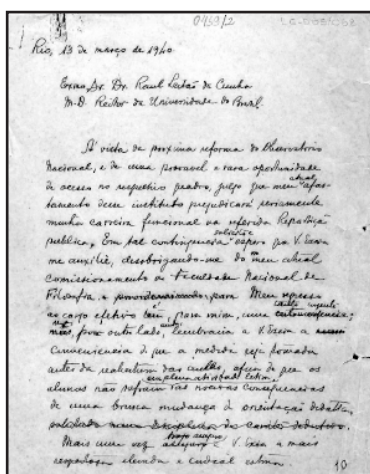 0459/2
Rio, 13 de março de 1940
Exmo. Sr. Dr. Raul Leitão da Cunha
M. D. Reitor da Universidade do Brasil.
Á vista da proxima reforma do Observatorio
Nacional, e de uma provavel e rara opportunidade
de acesso no respectivo quadro, julgo que meu atual afas-
tamento desse instituto prejudicará seriamente
minha carreira funcional na referida Repartição
publica. Em tal contingencia espero que V. Excia
me auxilie, desobrigando-me do meu atual
comissionamento na Faculdade Nacional de
Filosofia, para Meu regresso
ao cargo efetivo para mim, uma
por outro lado, lembraria a V. Excia a
conveniencia de que a medida seja tomada
antes da reabertura das aulas, afim de que os
alunos não sofram as nocivas consequencias
de uma brusca mudança de orientação didatica
Mais uma vez V. Excia a mais
respeitosa elevada e cordial estima
10